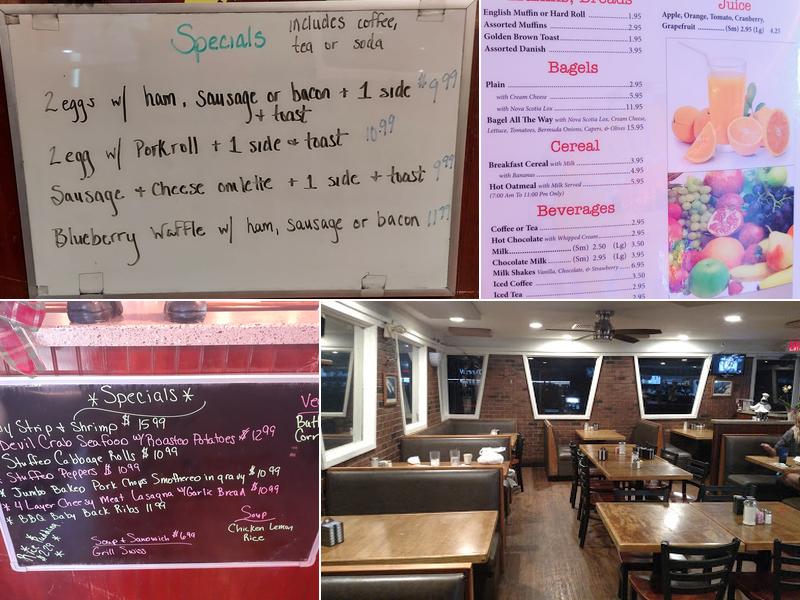 Specials includes coffee,
tea or soda
2 eggs w/ ham, sausage or bacon + 1 side $9.99
+ toast
2 egg w/ Porkroll + 1 side + toast 10.99
Sausage + Cheese omlette + 1 side + toast 9.99
Blueberry Waffle w/ ham, sausage or bacon 11.99
Breads
English Muffin or Hard Roll 1.95
Assorted Muffins 2.95
Golden Brown Toast 1.95
Assorted Danish 3.95
Bagels
Plain 2.95
with Cream Cheese 5.95
with Nova Scotia Lox 11.95
Bagel All The Way with Nova Scotia Lox, Cream Cheese,
Lettuce, Tomatoes, Bermuda Onions, Capers, & Olives 15.95
Cereal
Breakfast Cereal with Milk 3.95
with Bananas 4.95
Hot Oatmeal with Milk Served 5.95
(7:00 Am To 11:00 Pm Only)
Beverages
Coffee or Tea 2.95
Hot Chocolate with Whipped Cream 2.95
Milk (Sm) 2.50 (Lg) 3.50
Chocolate Milk (Sm) 2.95 (Lg) 3.95
Milk Shakes Vanilla, Chocolate, & Strawberry 6.95
Iced Coffee 3.50
Iced Tea 2.95
Juice
Apple, Orange, Tomato, Cranberry,
Grapefruit (Sm) 2.95 (Lg) 4.25
*Specials*
Strip + Shrimp $15.99
Devil Crab Seafood w/ Roasted Potatoes $12.99
Stuffed Cabbage Rolls $10.99
Stuffed Peppers $10.99
* Jumbo Baked Pork Chops Smothered in gravy $10.99
* 4 Layer Cheesy Meat Lasagna w/ Garlic Bread $10.99
* BBQ Baby Back Ribs 11.99
Rice Pudding
$2.99
Soup + Sandwich $6.99
Grill Swiss
Soup
Chicken Lemon
Rice